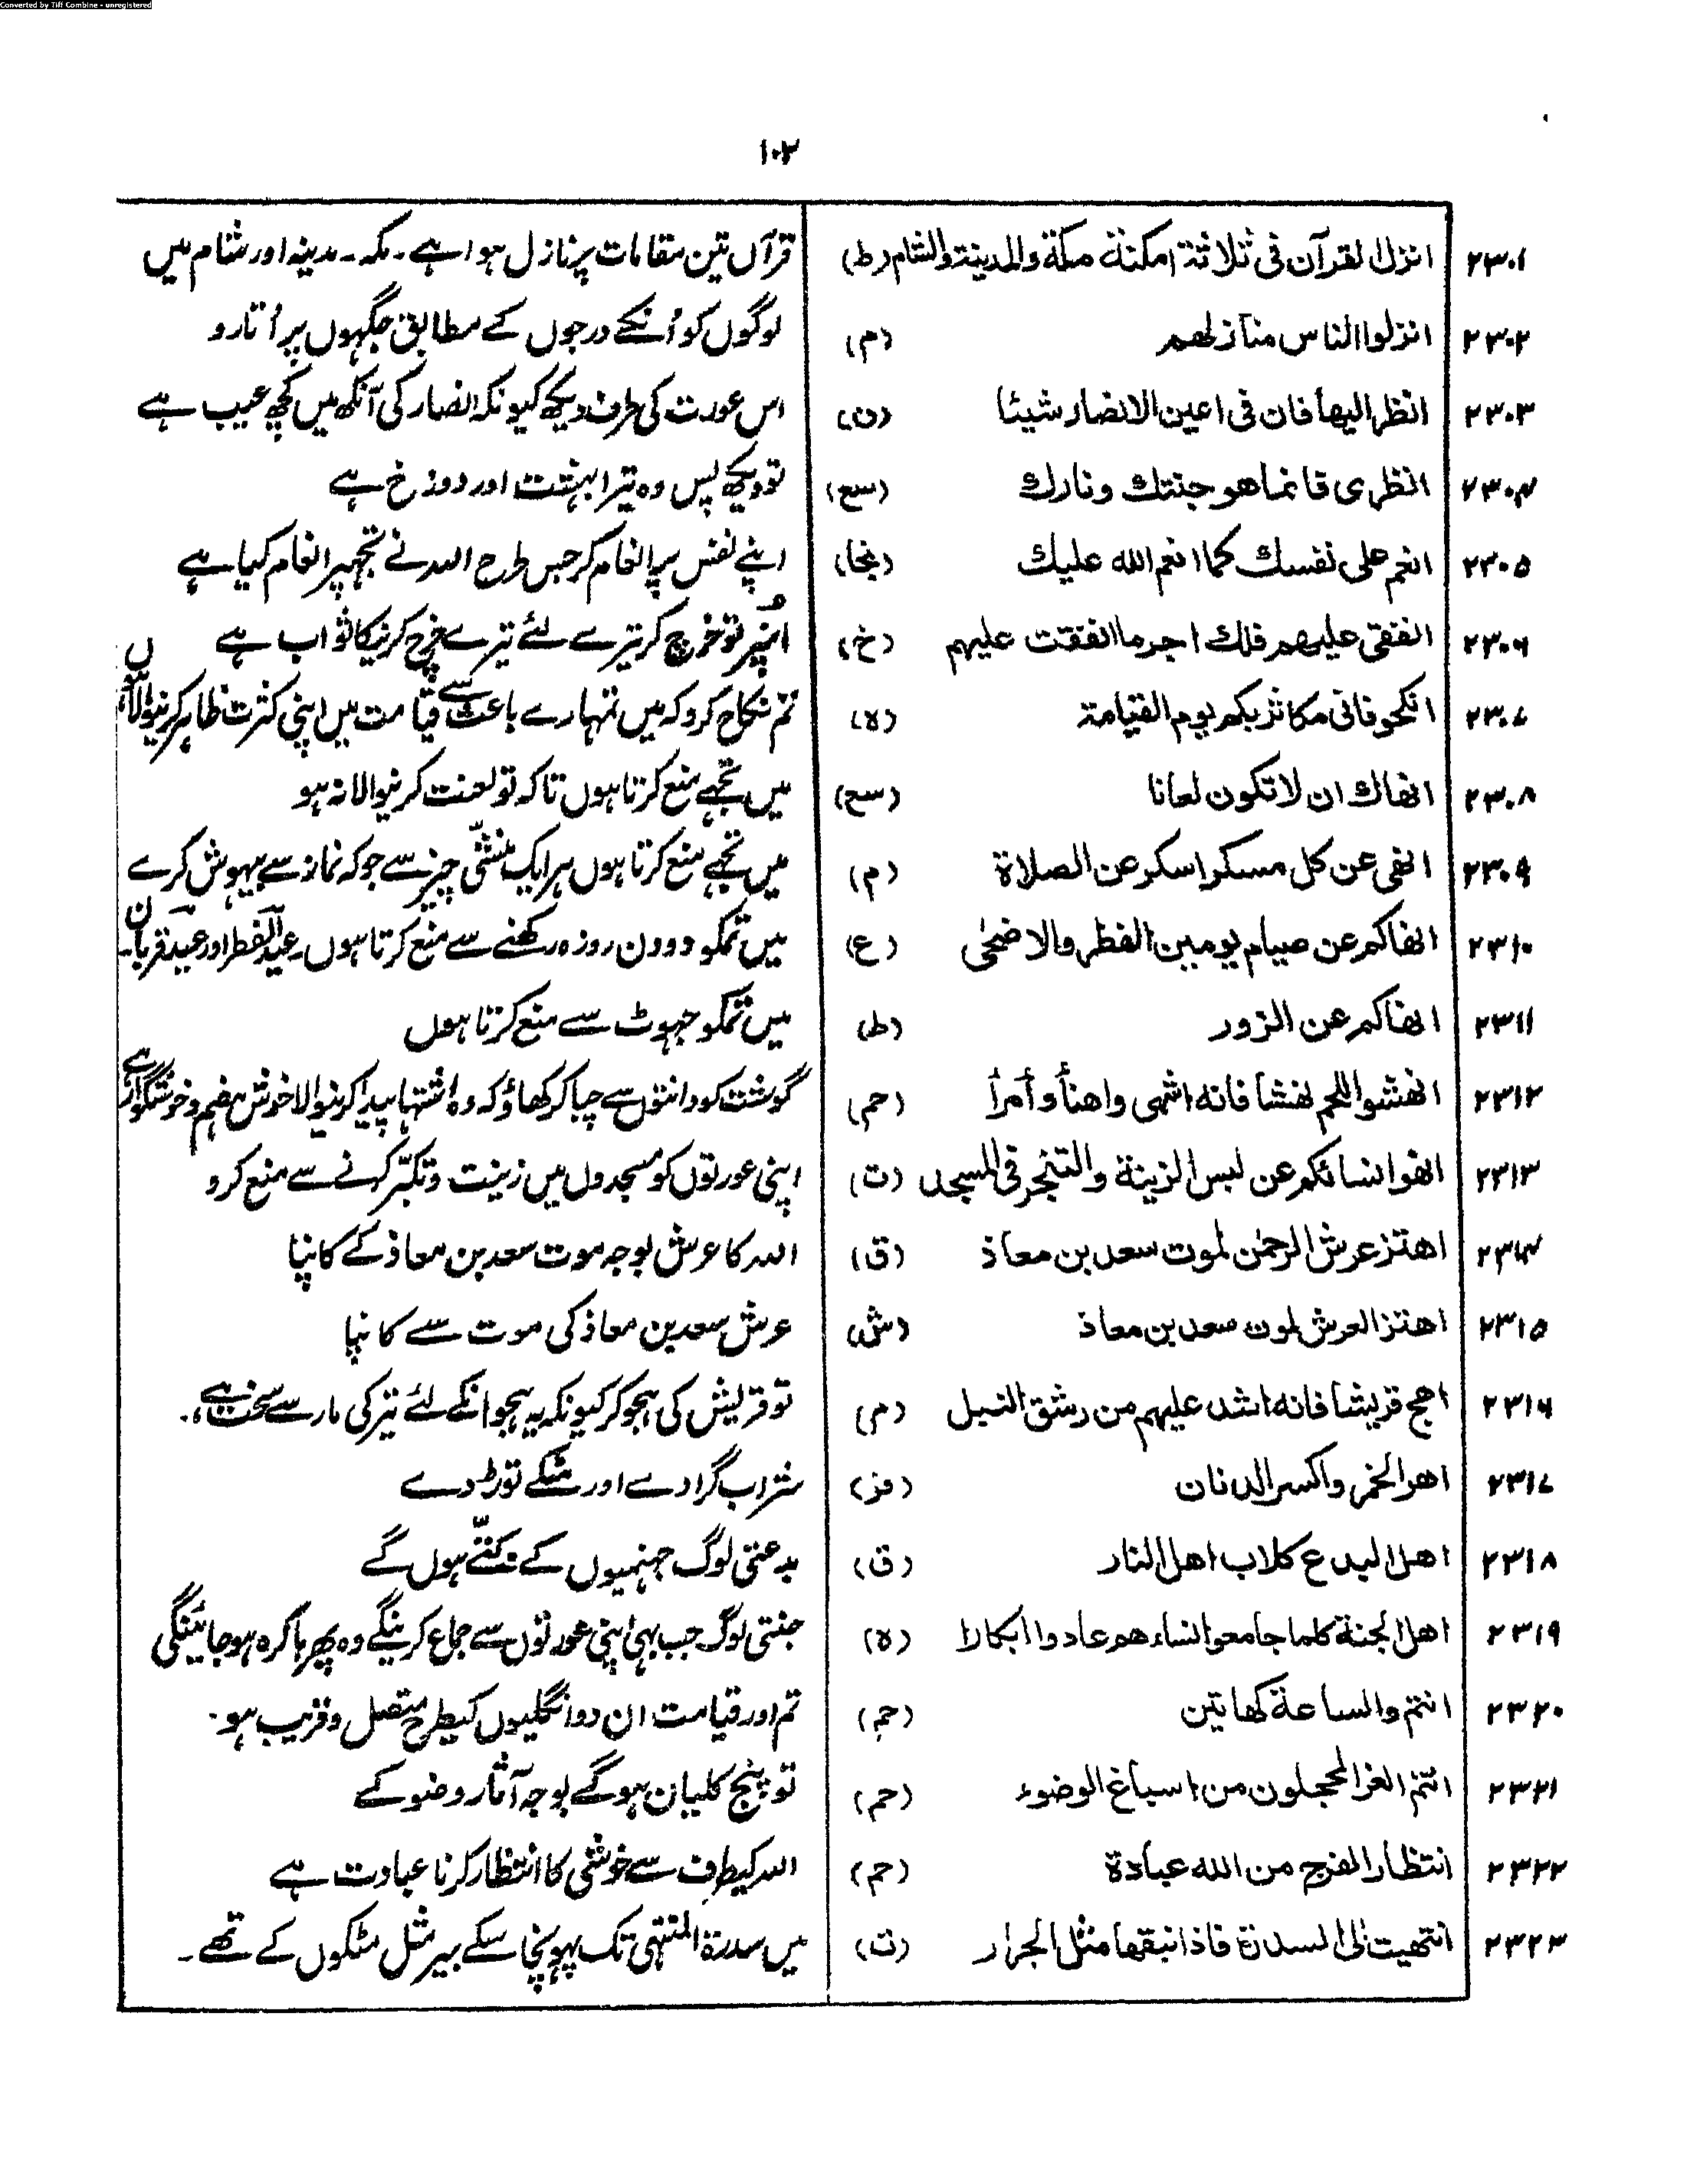 Converted by Tiff Combine - unregistered
۱۰۲
۲۳۰۱ انزل القرآن فی ثلاثة امکنة مکة والمدینة والشام (ط) قرآن تین مقامات پر نازل ہوا ہے۔ مکہ۔ مدینہ اور شام میں
۲۳۰۲ انزلوا الناس منازلهم (م) لوگوں کو اُنکے درجوں کے مطابق جگہوں پر اُتارو
۲۳۰۳ انظر الیها فان فی اعین الانصار شیئا (ن) اس عورت کی طرف دیکھ کیونکہ انصار کی آنکھ میں کچھ عیب ہے
۲۳۰۴ انظری فانما هو جنتك ونارك (سع) تو دیکھ پس وہ تیرا بہشت اور دوزخ ہے
۲۳۰۵ انعم علی نفسك کما انعم الله علیك (نجا) اپنے نفس پر انعام کر جس طرح اللہ نے تجہپر انعام کیا ہے
۲۳۰۶ انفقی علیهم فلك اجر ما انفقت علیهم (خ) اُنپر تو خرچ کر تیرے لئے تیرے خرچ کرنیکا ثواب ہے
۲۳۰۷ انکحو فانی مکاثر بکم یوم القیامة (ه) تم نکاح کرو کہ میں تمہارے باعث سے قیامت میں اپنی کثرت ظاہر کرنیوالا ہوں
۲۳۰۸ انهاك ان لا تکون لعانا (سع) میں تجہے منع کرتا ہوں تاکہ تو لعنت کرنیوالا نہ ہو
۲۳۰۹ انهی عن کل مسکر اسکر عن الصلاة (م) میں تجہے منع کرتا ہوں ہر ایک منشّی چیز سے جو کہ نماز سے بیہوش کرے
۲۳۱۰ انهاکم عن صیام یومین الفطر والاضحٰی (ع) میں تمکو دو دن روزہ رکھنے سے منع کرتا ہوں عید الفطر اور عید قربان۔
۲۳۱۱ انهاکم عن الزور (ط) میں تمکو جہوٹ سے منع کرتا ہوں
۲۳۱۲ انهشوا اللحم نهشا فانه اشهی واهنأ وأمرأ (حم) گوشت کو دانتوں سے چبا کر کھاؤ کہ وہ اشتہا پیدا کرنیوالا خوش ہضم و خوشگوار ہے
۲۳۱۳ انهوا نسائکم عن لبس الزینة والتبختر فی المسجد (ت) اپنی عورتوں کو مسجدول میں زینت و تکبّر کہنے سے منع کرو
۲۳۱۴ اهتز عرش الرحمٰن لموت سعد بن معاذ (ق) اللہ کا عرش بوجہ موت سعد بن معاذ کے کانپا
۲۳۱۵ اهتز العرش لموت سعد بن معاذ (ش) عرش سعد بن معاذ کی موت سے کانپا
۲۳۱۶ اهج قریشا فانه اشد علیهم من رشق النبل (م) تو قریش کی ہجو کر کیونکہ یہ ہجو انکے لئے تیر کی مار سے سخت ہے۔
۲۳۱۷ اهر الخمر واکسر الدنان شراب گرا دے اور مٹکے توڑ دے
۲۳۱۸ اهل البدع کلاب اهل النار (ق) بدعتی لوگ جہنمیوں کے کتّے ہوں گے
۲۳۱۹ اهل الجنة کلما جامعوا نساءهم عادوا ابکارا (ه) جنتی لوگ جب بہی اپنی عورتوں سے جماع کرینگے وہ پھر باکرہ ہو جائینگی
۲۳۲۰ انتم والساعة کهاتین (حم) تم اور قیامت ان دو انگلیوں کیطرح متصل و قریب ہو۔
۲۳۲۱ انتم الغر المحجلون من اسباغ الوضوء (حم) تو پنج کلیان ہوگے بوجہ آثار وضو کے
۲۳۲۲ انتظار الفرج من الله عبادة (حم) اللہ کیطرف سے خوشی کا انتظار کرنا عبادت ہے
۲۳۲۳ انتهیت الی السدرة فاذا نبقها مثل الجرار (ت) میں سدرة المنتهی تک پہونچا سکے بیر مثل مٹکوں کے تھے۔